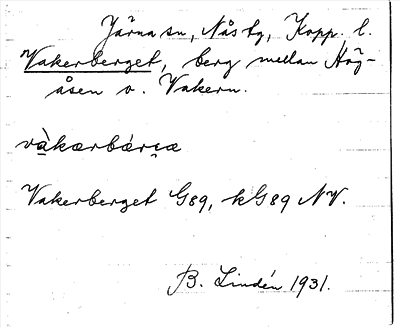 Järna sn, Nås tg, Kopp. l.
Vakerberget, berg mellan Hög-
åsen o. Vakern.
vàkærbárᶎæ
Vakerberget G89, kG89 NV.
B. Lindén 1931.